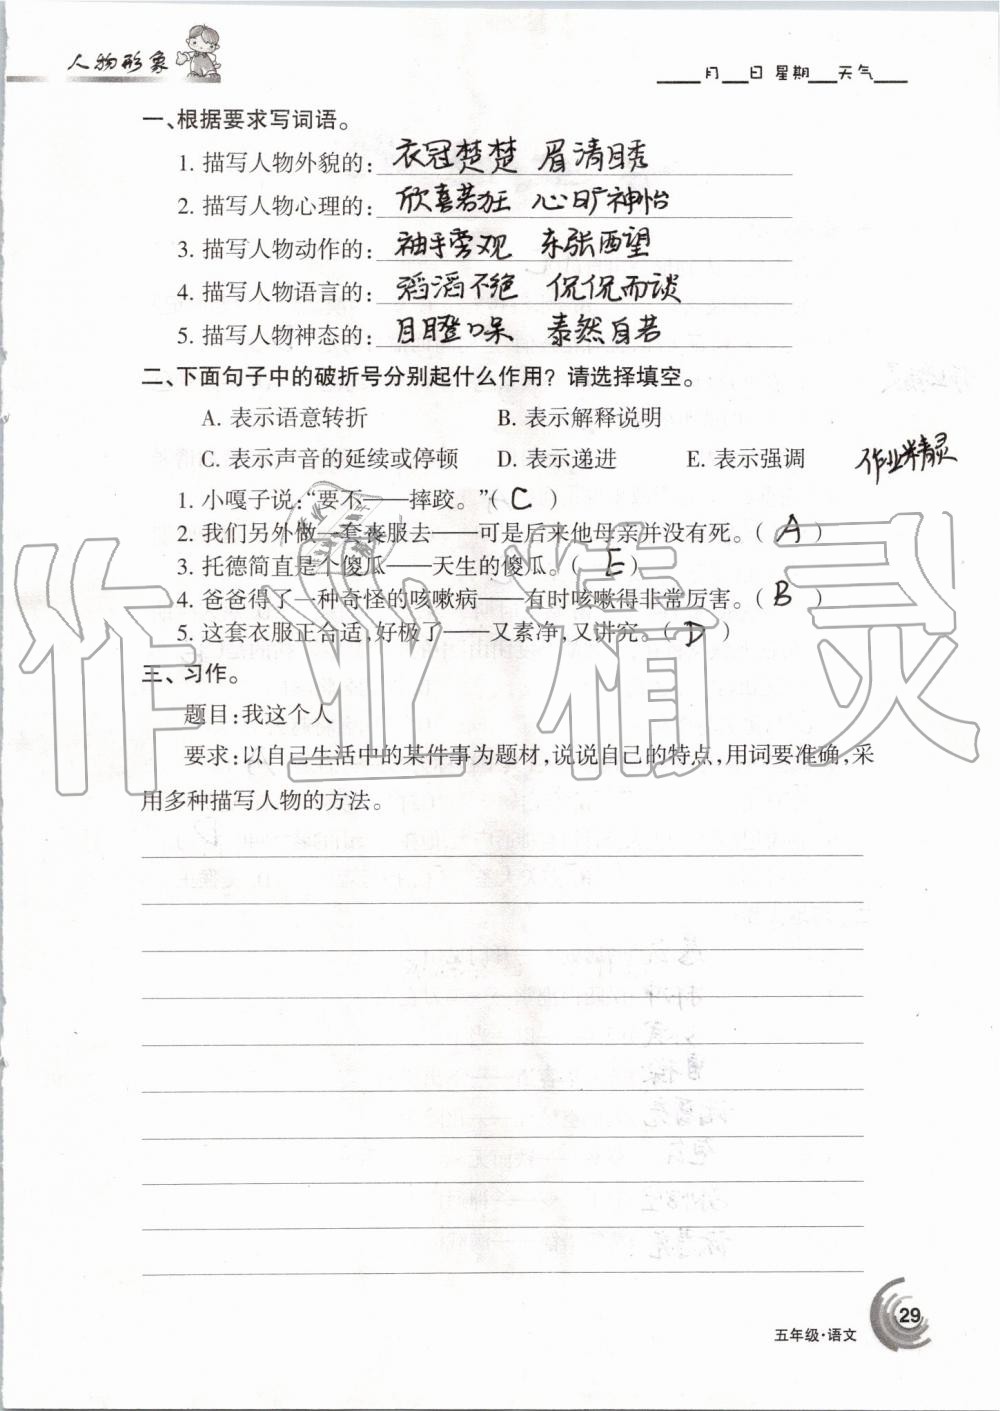 人物形象
____月___日 星期___天气____
一、根据要求写词语。
1. 描写人物外貌的：衣冠楚楚 眉清目秀
2. 描写人物心理的：欣喜若狂 心旷神怡
3. 描写人物动作的：袖手旁观 东张西望
4. 描写人物语言的：滔滔不绝 侃侃而谈
5. 描写人物神态的：目瞪口呆 泰然自若
二、下面句子中的破折号分别起什么作用？请选择填空。
A. 表示语意转折 B. 表示解释说明
C. 表示声音的延续或停顿 D. 表示递进 E. 表示强调
作业精灵
1. 小嘎子说：“要不——摔跤。”（ C ）
2. 我们另外做一套丧服去——可是后来他母亲并没有死。（ A ）
3. 托德简直是个傻瓜——天生的傻瓜。（ E ）
4. 爸爸得了一种奇怪的咳嗽病——有时咳嗽得非常厉害。（ B ）
5. 这套衣服正合适，好极了——又素净，又讲究。（ D ）
作业精灵
三、习作。
题目：我这个人
要求：以自己生活中的某件事为题材，说说自己的特点，用词要准确，采
用多种描写人物的方法。
五年级·语文
29